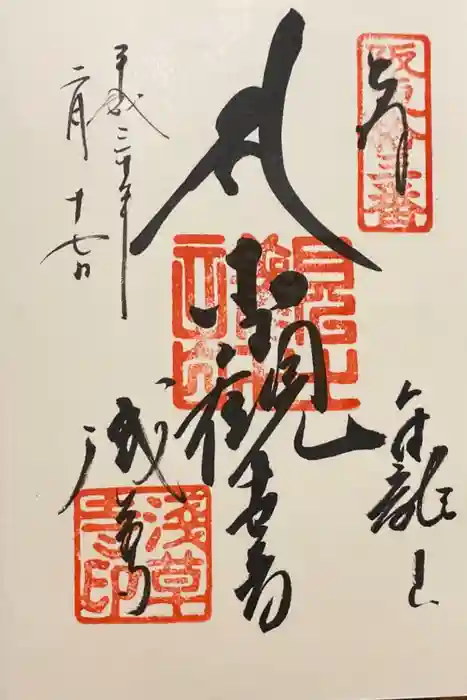 阪東拾三番
金龍山
聖観世音
浅草寺
淺草
寺印
平成三十年
二月十七日